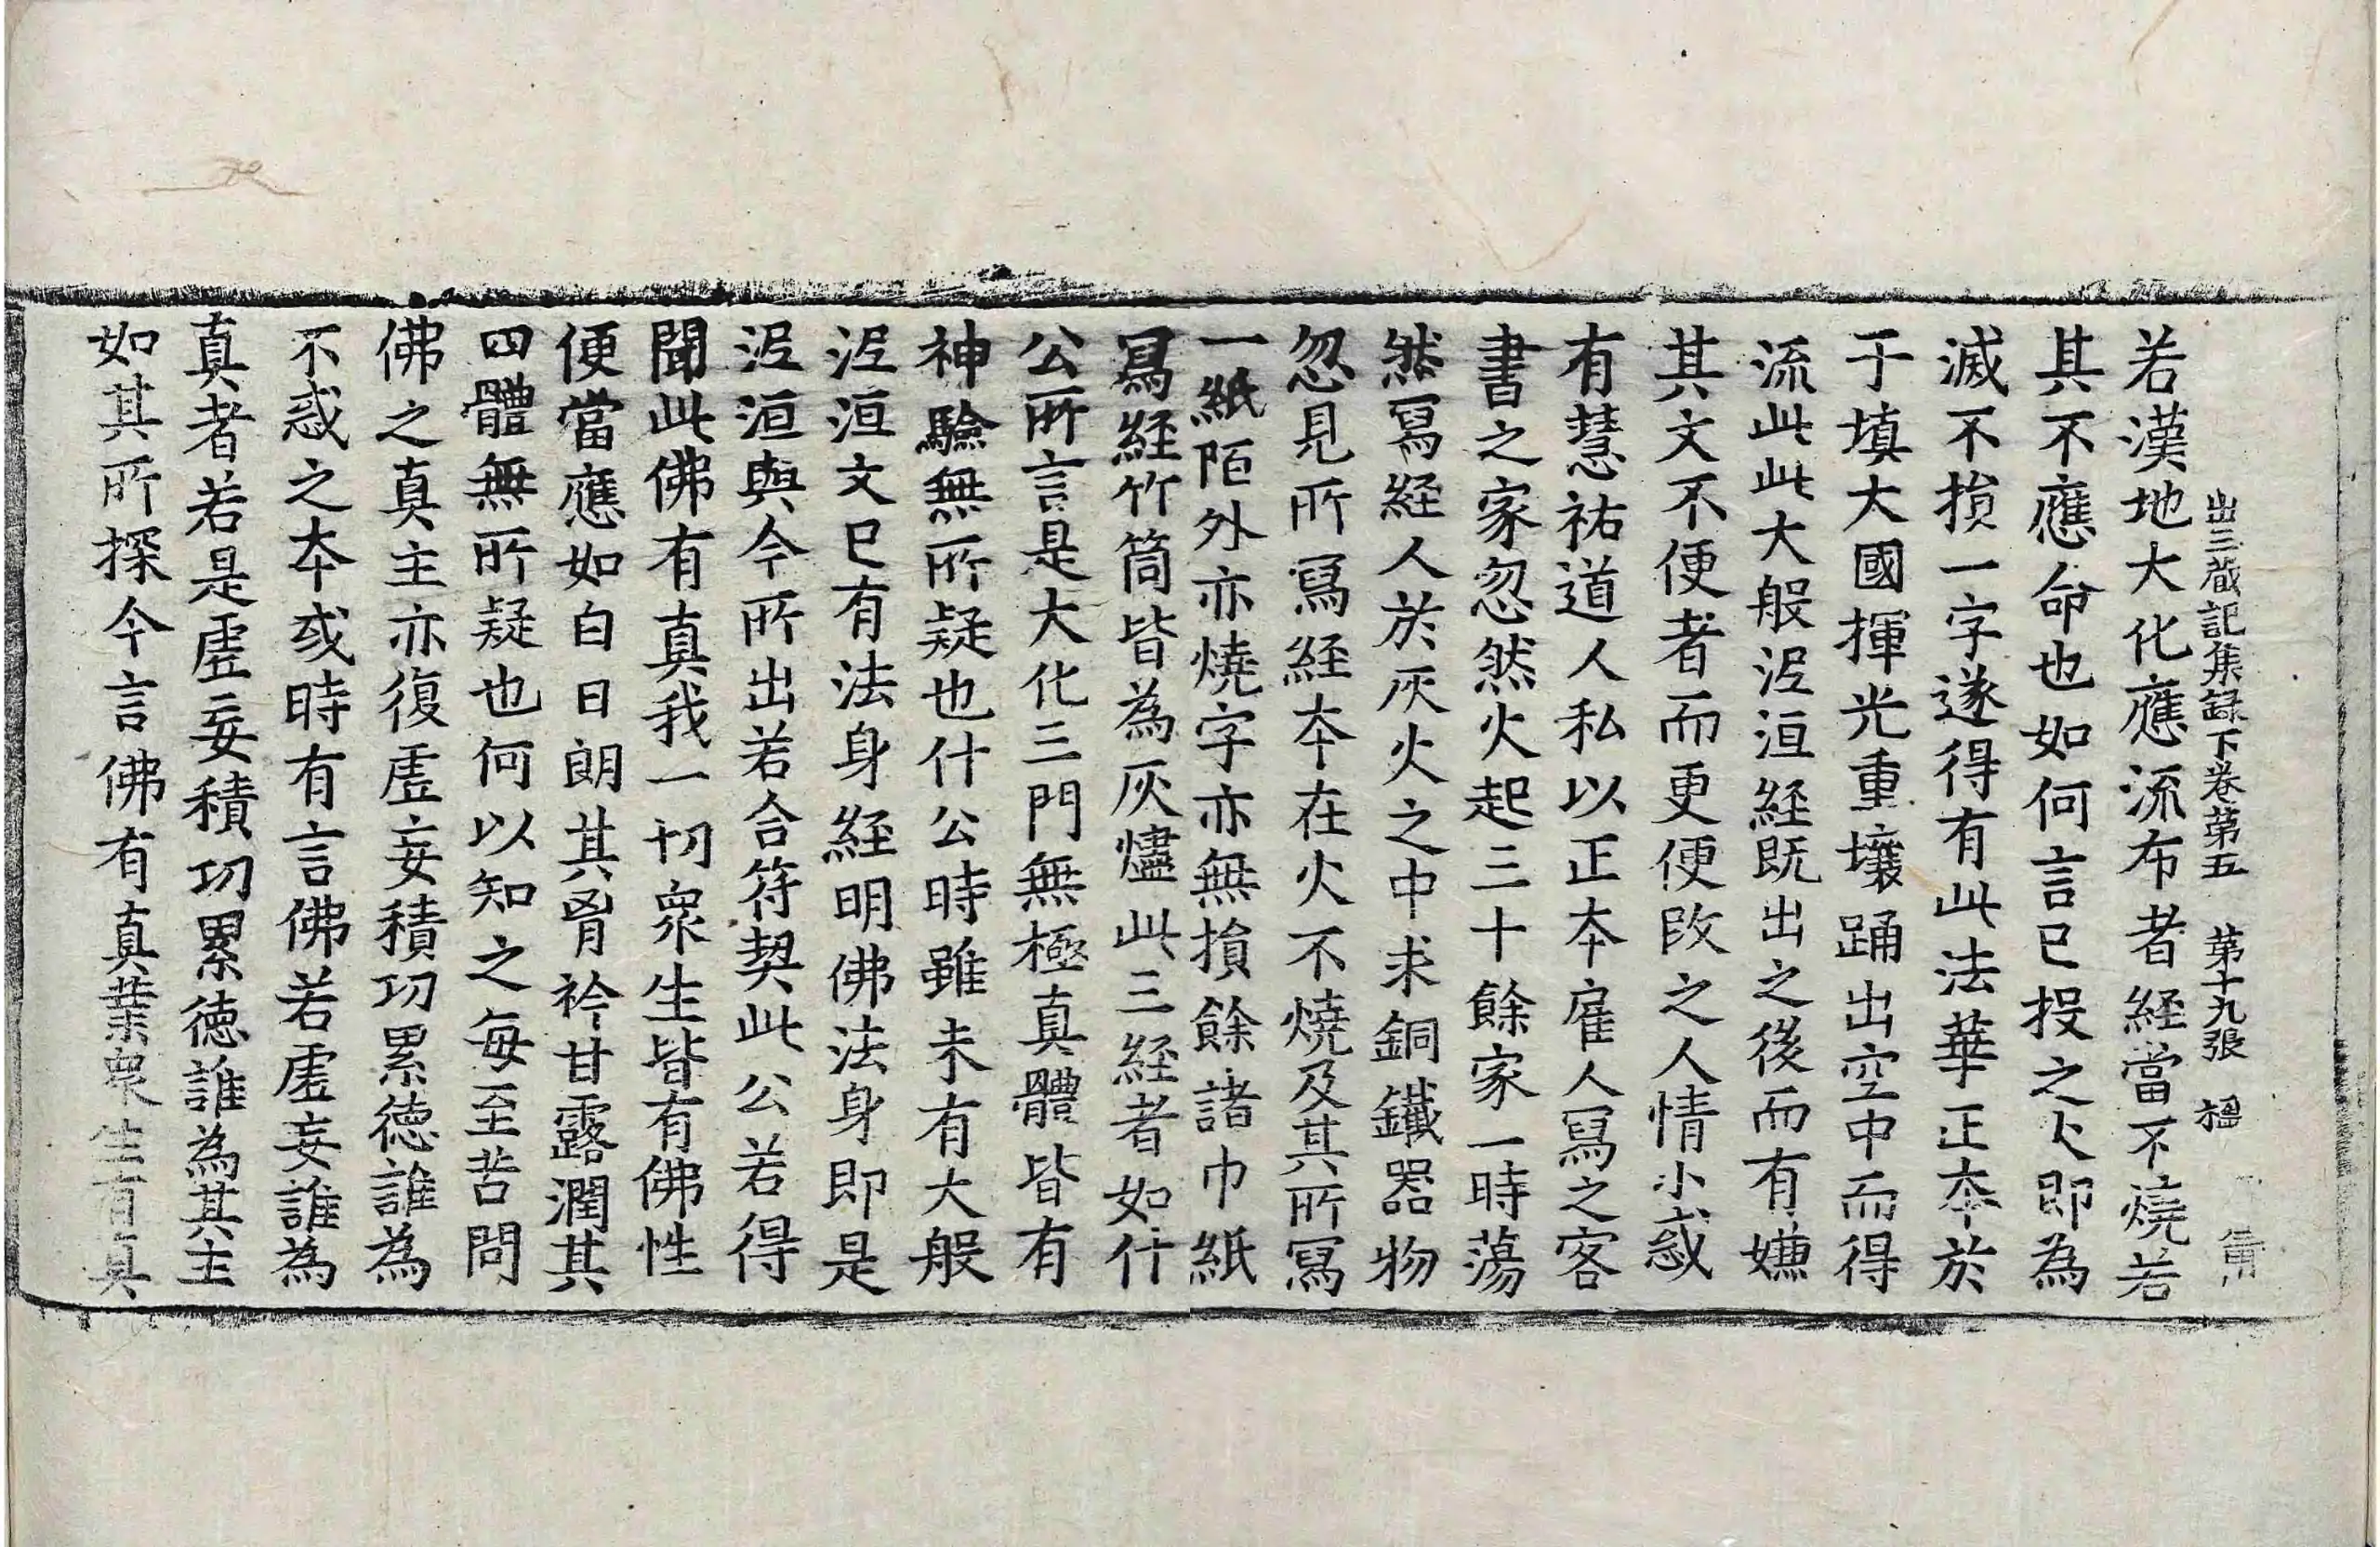 出三蔵記集録下卷第五 第十九張 楹
若漢地大化應流布者經當不燒若
其不應命也如何言已投之火即為
滅不損一字遂得有此法華正夲於
于填大國揮光重壤踊出空中而得
流此此大般泥洹經既出之後而有嫌
其文不便者而更便改之人情小惑
有慧祐道人私以正夲雇人寫之客
書之家忽然火起三十餘家一時蕩
然寫經人於灰火之中求銅鐵器物
忽見所寫經夲在火不燒及其所寫
一紙陌外亦燒字亦無損餘諸巾紙
寫經竹筒皆為灰燼此三經者如什
公所言是大化三門無極真體皆有
神驗無所疑也什公時雖未有大般
泥洹文已有法身經明佛法身即是
泥洹與今所出若合符契此公若得
聞此佛有真我一切眾生皆有佛性
便當應如白日朗其胷衿甘露潤其
四體無所疑也何以知之每至苦問
佛之真主亦復虛妄積功累德誰為
不惑之夲或時有言佛若虛妄誰為
真者若是虛妄積功累德誰為其主
如其所探今言佛有真業眾生有真